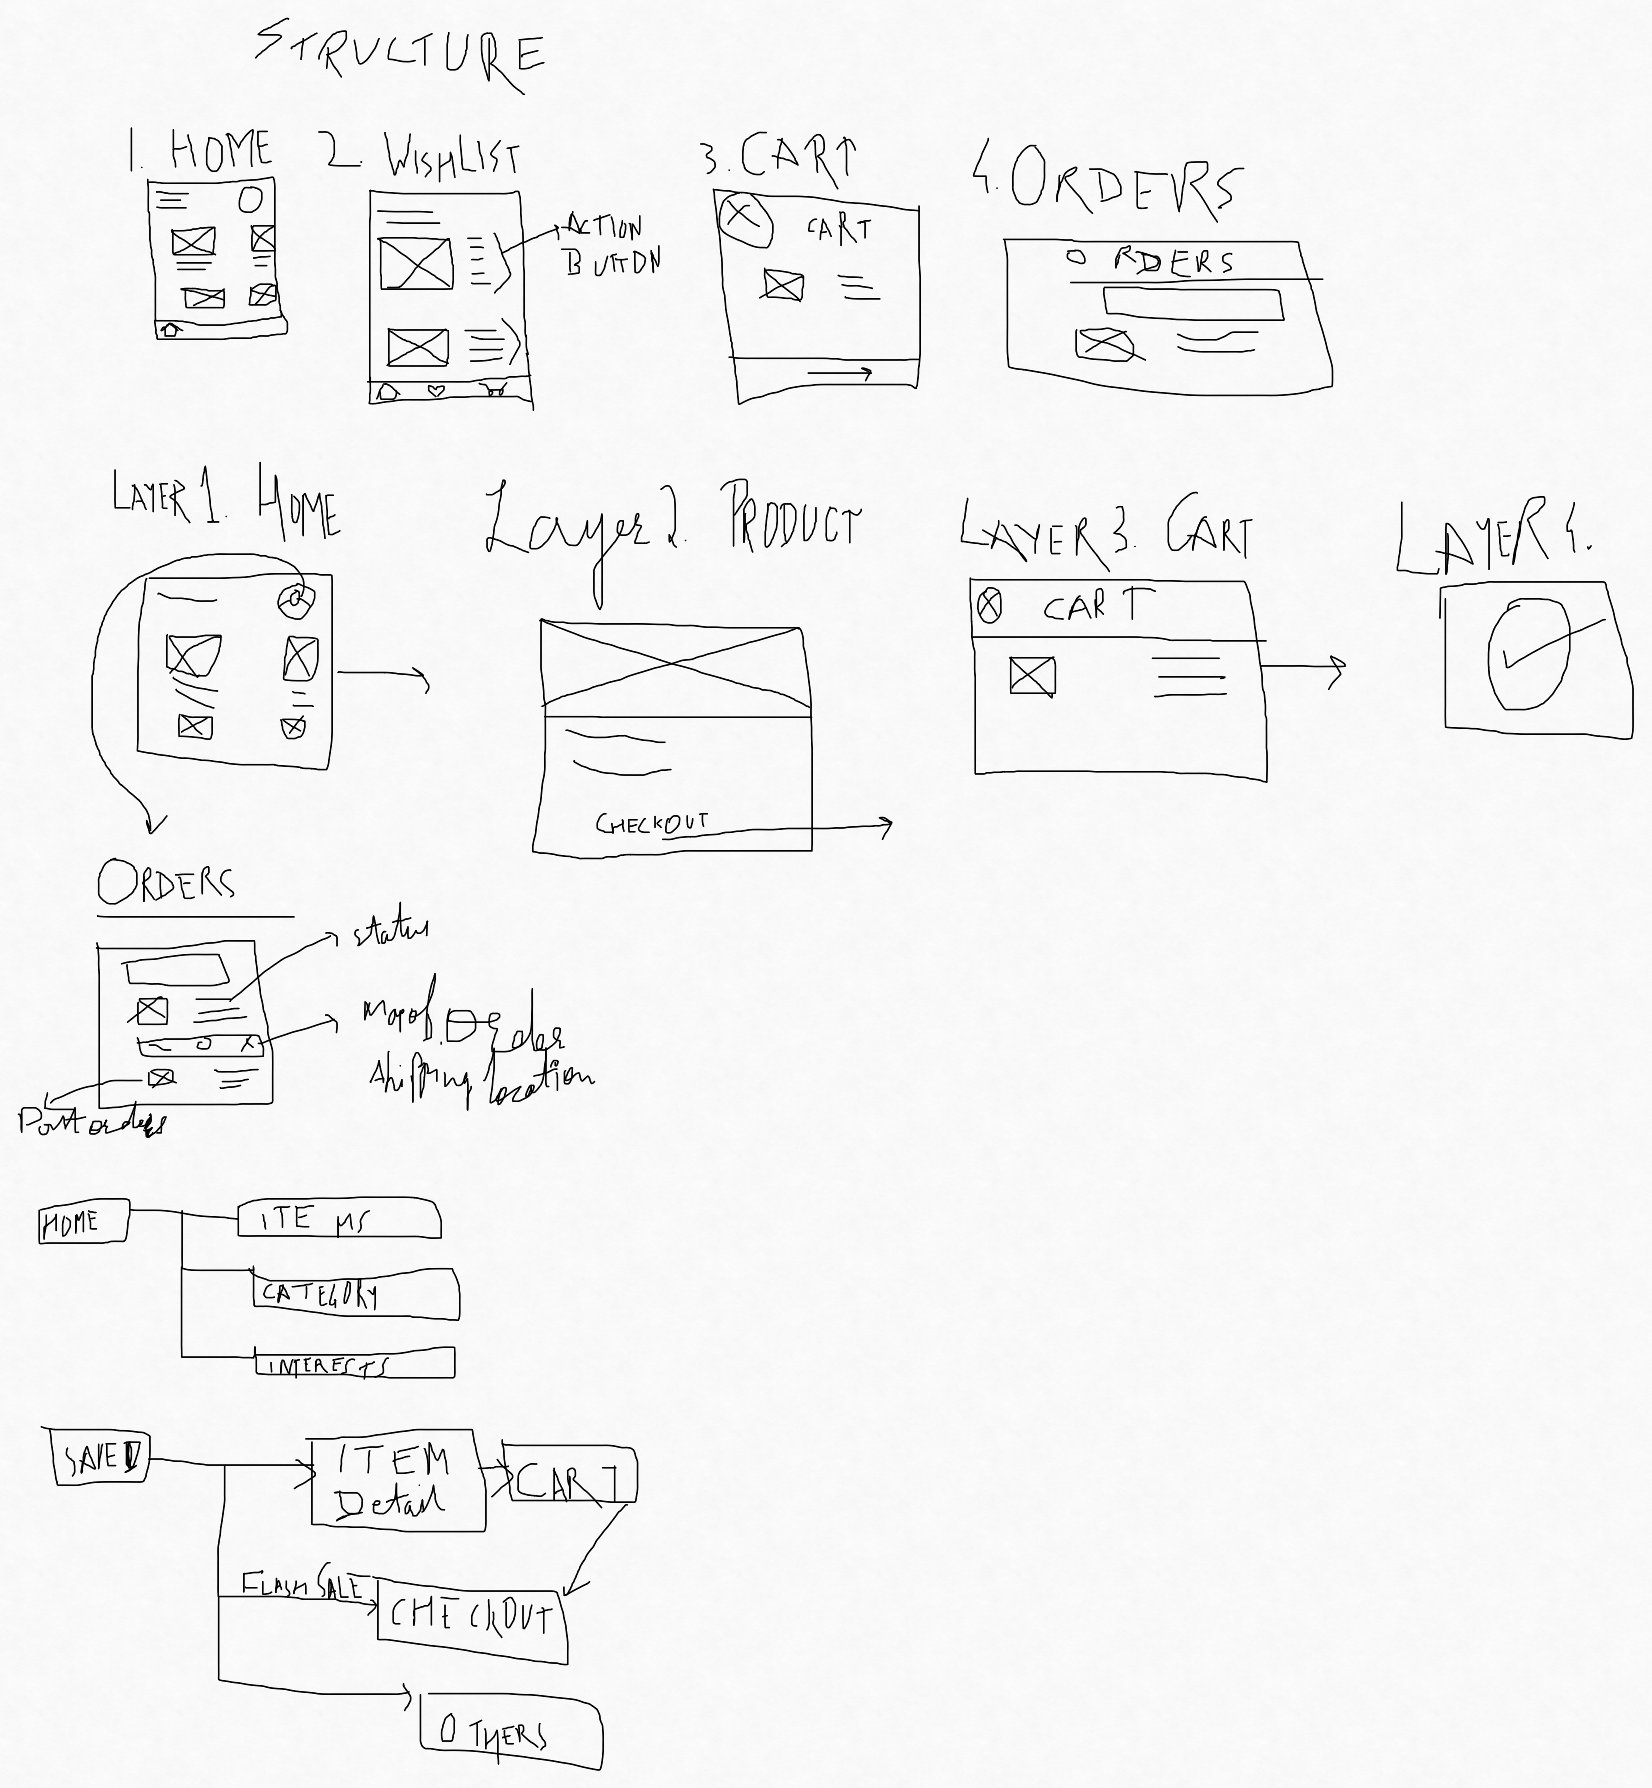 STRUCTURE
1. HOME
2. WISHLIST
3. CART
4. ORDERS
ACTION
BUTTON
CART
ORDERS
LAYER 1. HOME
Layer 2. PRODUCT
LAYER 3. CART
LAYER 4.
CART
CHECKOUT
ORDERS
status
Map of Order
shipping location
Past orders
HOME
ITEMS
CATEGORY
INTERESTS
SAVED
ITEM
Detail
CART
FLASH SALE
CHECKOUT
OTHERS